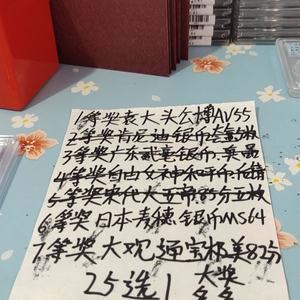 1等奖袁大头公博AU55
2等奖肯尼迪银币套装5枚
3等奖广东贰毫银币.美品
4等奖自由女神和平
5等奖宋代大五帝.85分五枚
6等奖日本寿德银币MS64
7等奖大观通宝极美82分
25选1 大奖